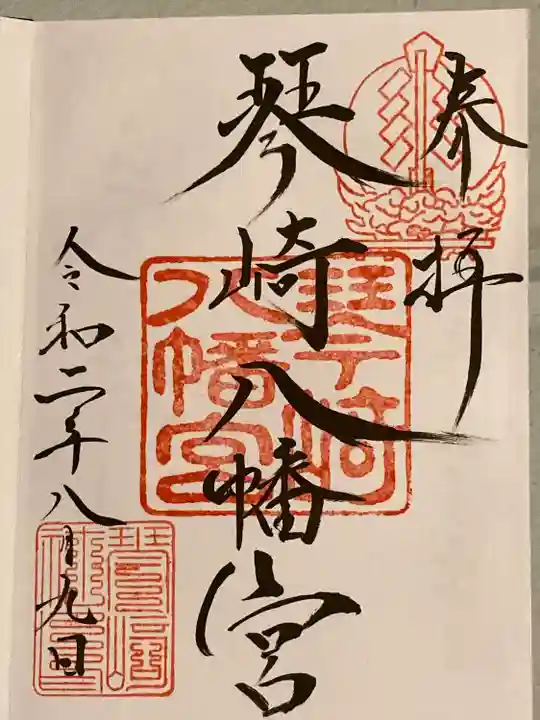 奉拝
琴崎八幡宮
令和二年八月九日
琴崎
八幡宮